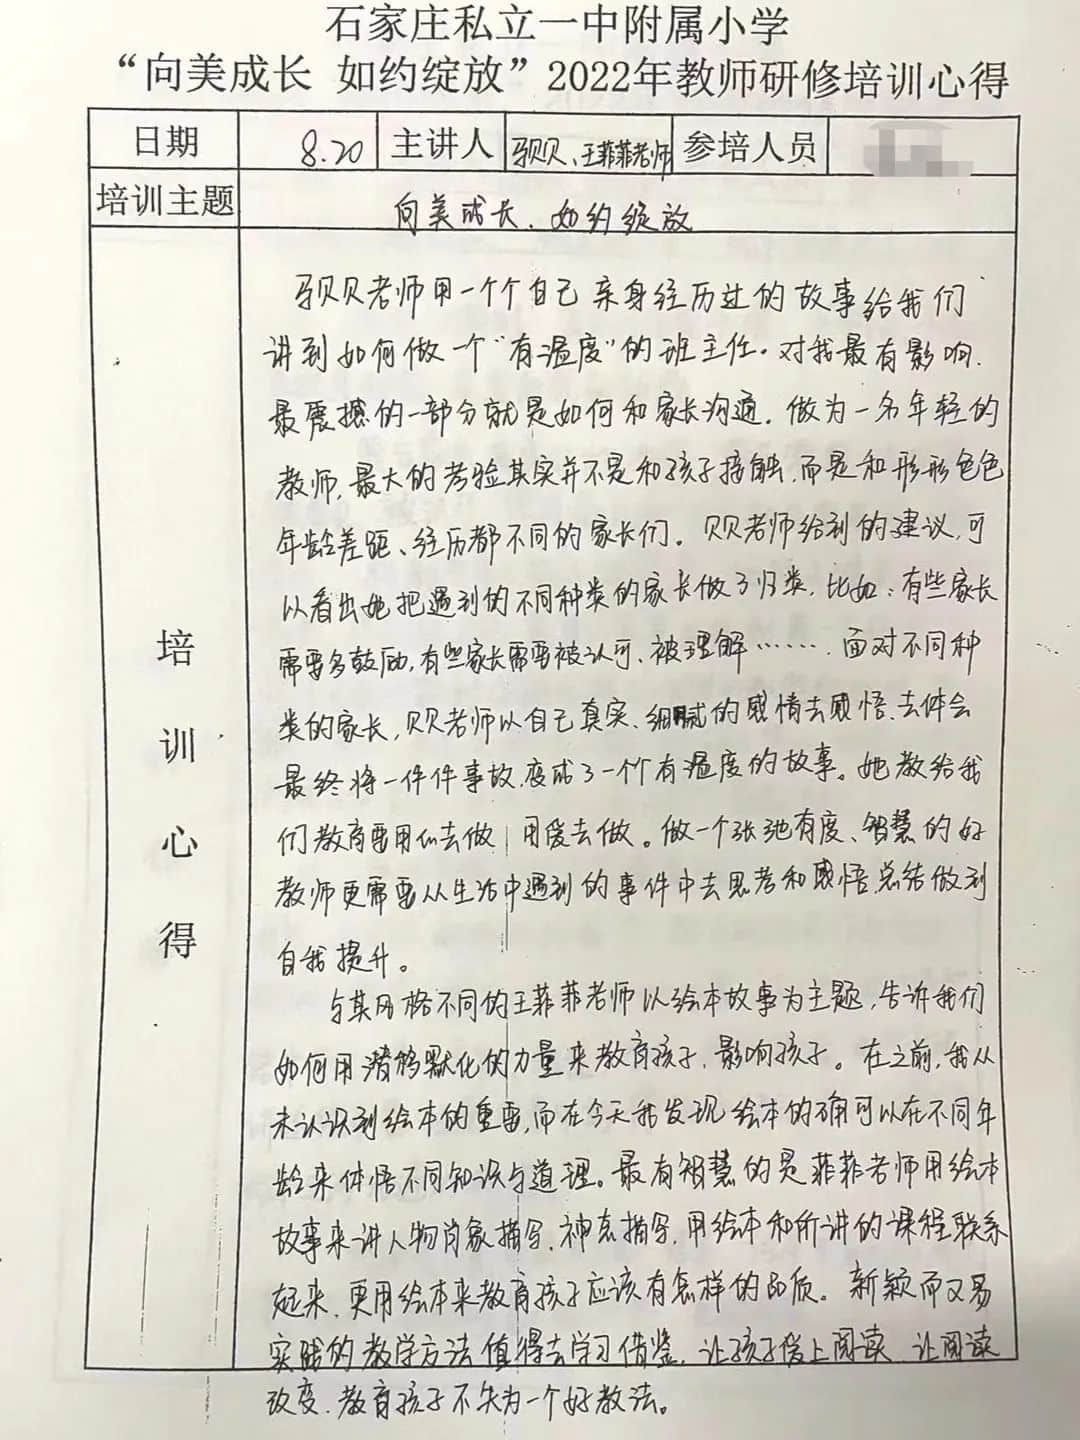 石家庄私立一中附属小学
“向美成长 如约绽放”2022年教师研修培训心得
日期 8.20 主讲人 贝贝、王菲菲老师 参培人员
培训主题 向美成长、如约绽放
培训心得
贝贝老师用一个个自己亲身经历过的故事给我们
讲到如何做一个“有温度”的班主任。对我最有影响、
最震撼的一部分就是如何和家长沟通。做为一名年轻的
教师,最大的考验其实并不是和孩子接触,而是和形形色色
年龄差距、经历都不同的家长们。贝贝老师给到的建议,可
以看出她把遇到的不同种类的家长做了归类,比如:有些家长
需要多鼓励,有些家长需要被认可、被理解……. 面对不同种
类的家长,贝贝老师以自己真实、细腻的感情去感悟、去体会
最终将一件件事故,变成了一个个有温度的故事。她教给我
们教育要用心去做 用爱去做。做一个张弛有度、智慧的好
教师更需要从生活中遇到的事件中去思考和感悟,总结做到
自我提升。
与其风格不同的王菲菲老师以绘本故事为主题,告诉我们
如何用潜移默化的力量来教育孩子,影响孩子。在之前,我从
未认识到绘本的重要,而在今天我发现绘本的确可以在不同年
龄来体悟不同知识与道理。最有智慧的是菲菲老师用绘本
故事来讲人物肖象描写、神态描写,用绘本和所讲的课程联系
起来、更用绘本来教育孩子应该有怎样的品质。新颖而又易
实践的教学方法值得去学习借鉴,让孩子爱上阅读 让阅读
改变、教育孩子不失为一个好教法。